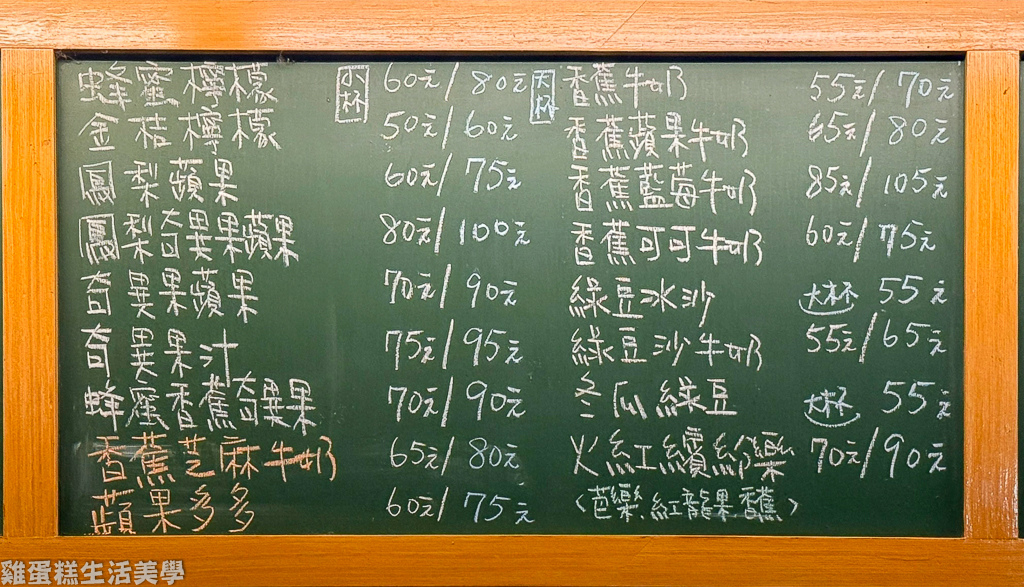 蜂蜜檸檬 小杯 60元/80元 大杯
金桔檸檬 50元/60元
鳳梨蘋果 60元/75元
鳳梨奇異果蘋果 80元/100元
奇異果蘋果 70元/90元
奇異果汁 75元/95元
蜂蜜香蕉奇異果 70元/90元
香蕉芝麻牛奶 65元/80元
蘋果多多 60元/75元
香蕉牛奶 55元/70元
香蕉蘋果牛奶 65元/80元
香蕉藍莓牛奶 85元/105元
香蕉可可牛奶 60元/75元
綠豆冰沙 大杯 55元
綠豆沙牛奶 55元/65元
冬瓜綠豆 大杯 55元
火紅繽紛樂 70元/90元
(芭樂、紅龍果香蕉)
雞蛋糕生活美學